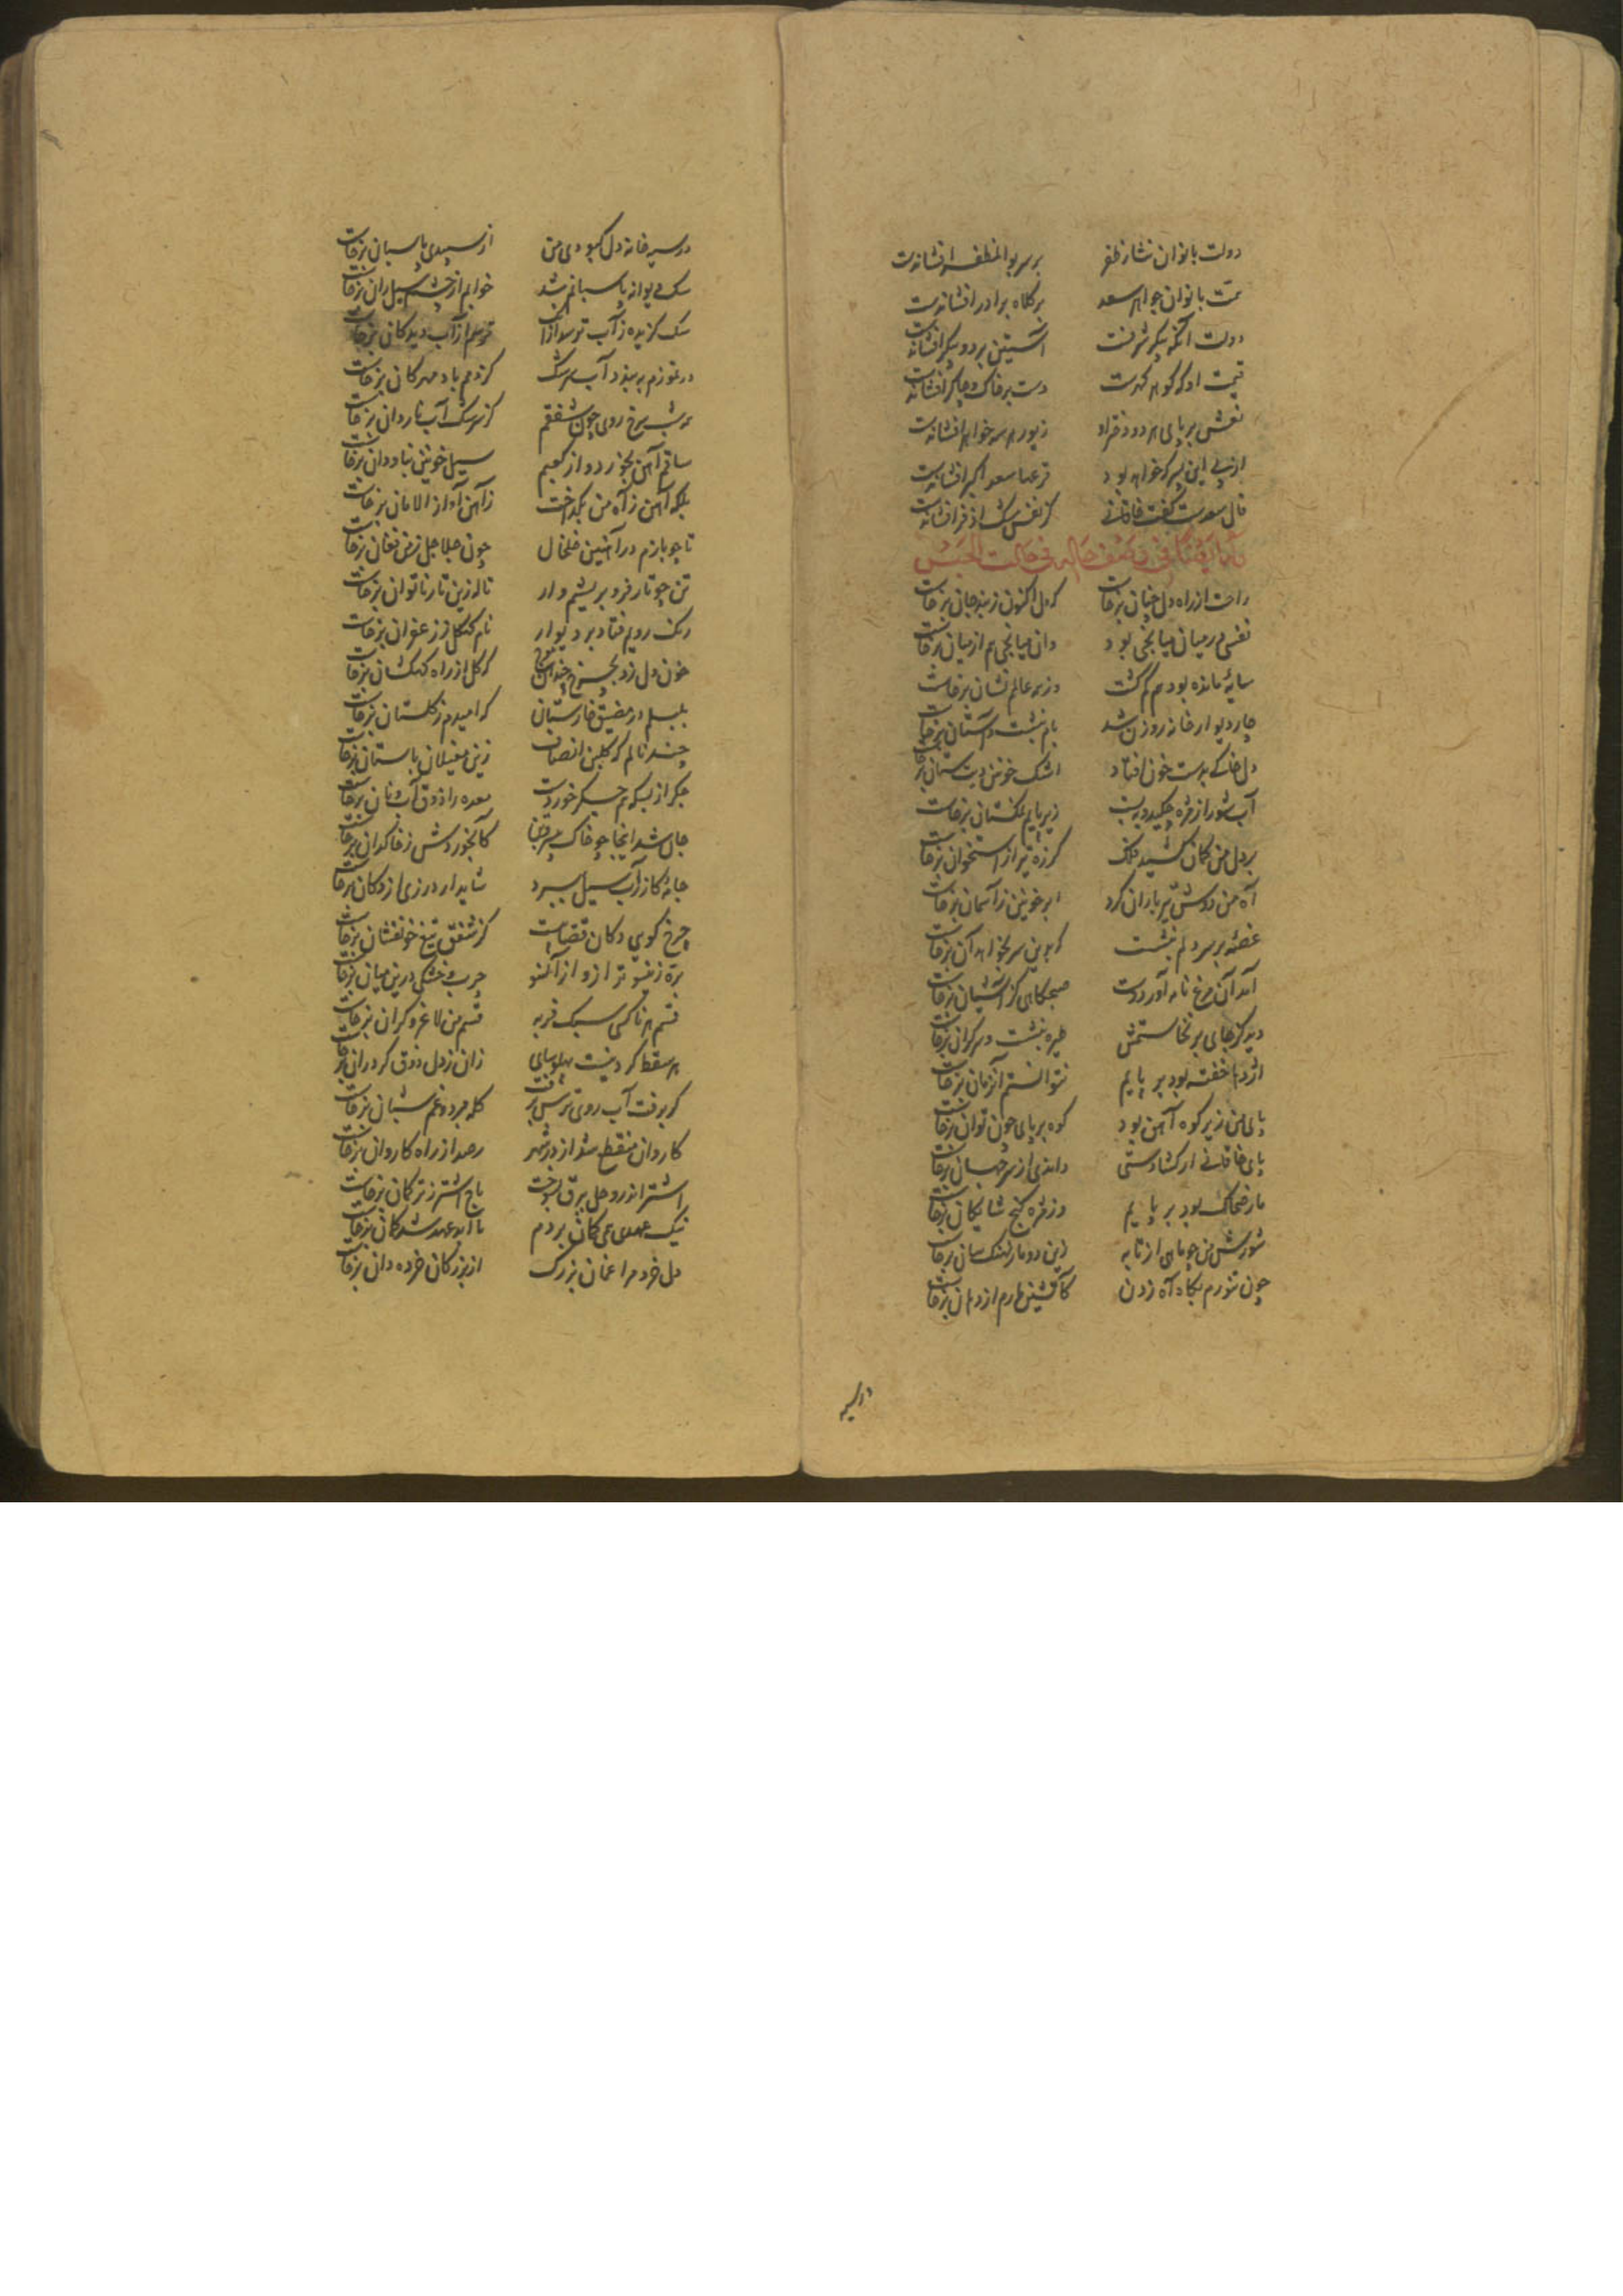 دولت بانوان نثار ظفر بر سر بوالمظفر افشاندست
همت بانوان جواهر سعد بر کلاه برادر افشاندست
دولت آنگه پیکر شرفت آستین بر دو پیکر افشاندست
همت او که گوهر کهرست دست بر خاک و جاگر افشاندست
نعش بر پای هر دو دختر او زیور هر سه خواهر افشاندست
از پی این پسر که خواهد بود قرعها سعد اکبر افشاندست
فال سعدست گفت خاقانی کز نفس مشک اذفر افشاندست
وله ایضا فی وصف حاله فی حالت الحبس
راحت از راه دل چنان برخاست که دل اکنون ز بند جان برخاست
نفسی در میان میانجی بود وان میانجی هم از میان برخاست
سایهٔ مانده بود هم گم گشت وز همه عالم نشان برخاست
چار دیوار خانه روزن شد بام بنشست و آستان برخاست
دل خاکی به دست خون افتاد اشک خونین دیت ستان برخاست
آب شور از مژه چکید و ببست زیر پایم نمکستان برخاست
بر دل من کمان کشید فلک لرز تیر از استخوان برخاست
آه من دوش تیر باران کرد ابر خونین ز آسمان برخاست
غصه بر سر دلم بنشست که بدین سر نخواهد آن برخاست
آمد آن مرغ نامه آور دوست صبحگاهی کز آشیان برخاست
دید کز جای بر نخاستمش طیره بنشست و سرگران برخاست
اژدها خفته بود بر پایم نتوانستم آن زمان برخاست
پای من زیر کوه آهن بود کوه بر پای چون توان برخاست
پای خاقانی ار گشادستی داندی از سر جهان برخاست
مار ضحاک بود بر پایم وز مژه گنج شایگان برخاست
سوزش من چو ماهی از تابه زین دو مار نهنگ سان برخاست
چون تنورم بگاه آه زدن کاتشین مارم از دهان برخاست
در سیه
در سیه خانه دل کبودی من از سپیدی پاسبان برخاست
سگ دیوانه پاسبانم شد خوابم از چشم سیل ران برخاست
سگ گزیده ز آب ترسد ازان ترسم از آب دیدگان برخاست
در تموزم ببندد آب سرشک کز دمم باد مهرگان برخاست
همه شب سرخ روی چون شفقم کز سرشک آب ناردان برخاست
ساقم آهن بخورد و از کعبم سیل خونین بناودان برخاست
بلکه آهن ز آه من بگداخت ز آهن آواز الامان برخاست
تا چو بازم در آهنین خلخال چون جلاجل ز من فغان برخاست
تن چو تار قز و بریشم وار ناله زین تار ناتوان برخاست
رنگ رویم فتاد بر دیوار نام کهگل ز زعفران برخاست
خون دل زد به چرخ چندان موج که گل از راه کهکشان برخاست
بلبلم در مضیق خارستان که امیدم ز گلستان برخاست
چند نالم که گلبن انصاف زین مغیلان باستان برخاست
جگر از بسکه هم جگر خوردست معده را ذوق آب و نان برخاست
جان شد اینجا چه خاک بیزد تن کابخوردش ز خاکدان برخاست
جامهٔ گازر آب سیل ببرد شاید ار درزی از دکان برخاست
چرخ گویی دکان قصابیست کز شفق تیغ خونفشان برخاست
بره زین سو ترازو از آن سو چرب و خشکی درین میان برخاست
قسم هر ناکسی سبک فربه قسم من لاغر و گران برخاست
هر سقط گردنیست پهلوسای زان ز دل ذوق گردران برخاست
گر برفت آب روی ترس برفت گله مرد و غم شبان برخاست
کاروان منقطع شد از در شهر رصد از راه کاروان برخاست
اشتر اندر وحل به برق بسوخت باج اشتر ز ترکمان برخاست
نیک عهدی همی گمان بردم تا ابد عهد شد گمان برخاست
دل خرد مرا غمان بزرگ از بزرگان خرده دان برخاست